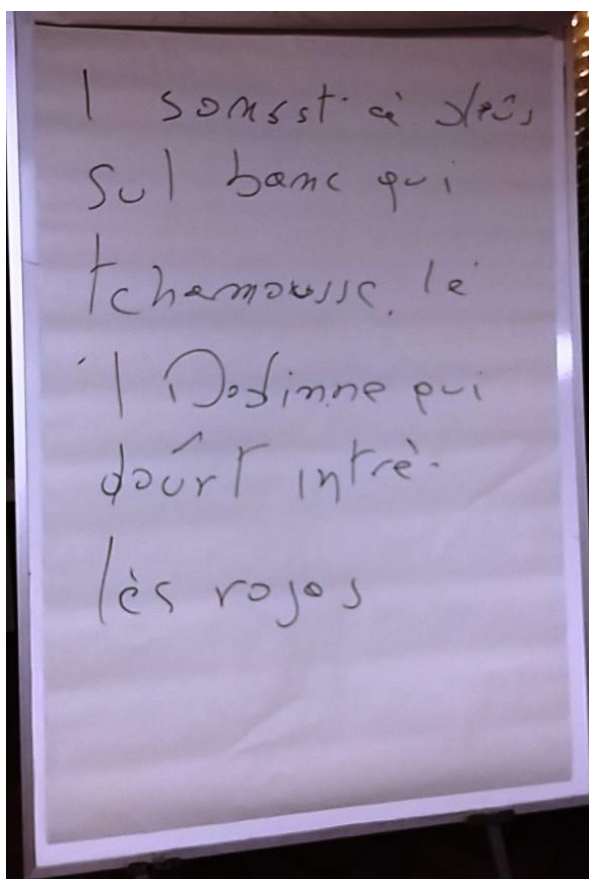 I sonsst à deûs
sul banc qui
tchamousse, lè
l Dodinne qui
doûrt intrè
lès rojos